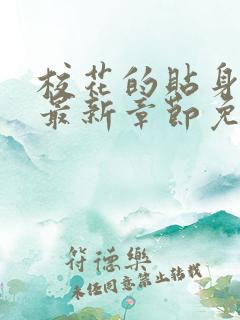 校花的贴身
最新章节免
符德乐
未经同意禁止转载